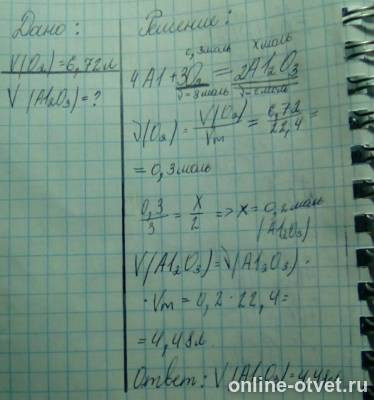 Дано:
V(O₂)=6,72л
V(Al₂O₃)=?
Решение:
0,3моль xмоль
4Al+3O₂ = 2Al₂O₃
ν=3моль ν=2моль
ν(O₂)=V(O₂)/Vm = 6,72/22,4 =
=0,3моль
0,3/3 = x/2 => x=0,2моль
(Al₂O₃)
V(Al₂O₃)=ν(Al₂O₃)·
·Vm=0,2·22,4=
=4,48л
Ответ: V(Al₂O₃)=4,48л
online-otvet.ru